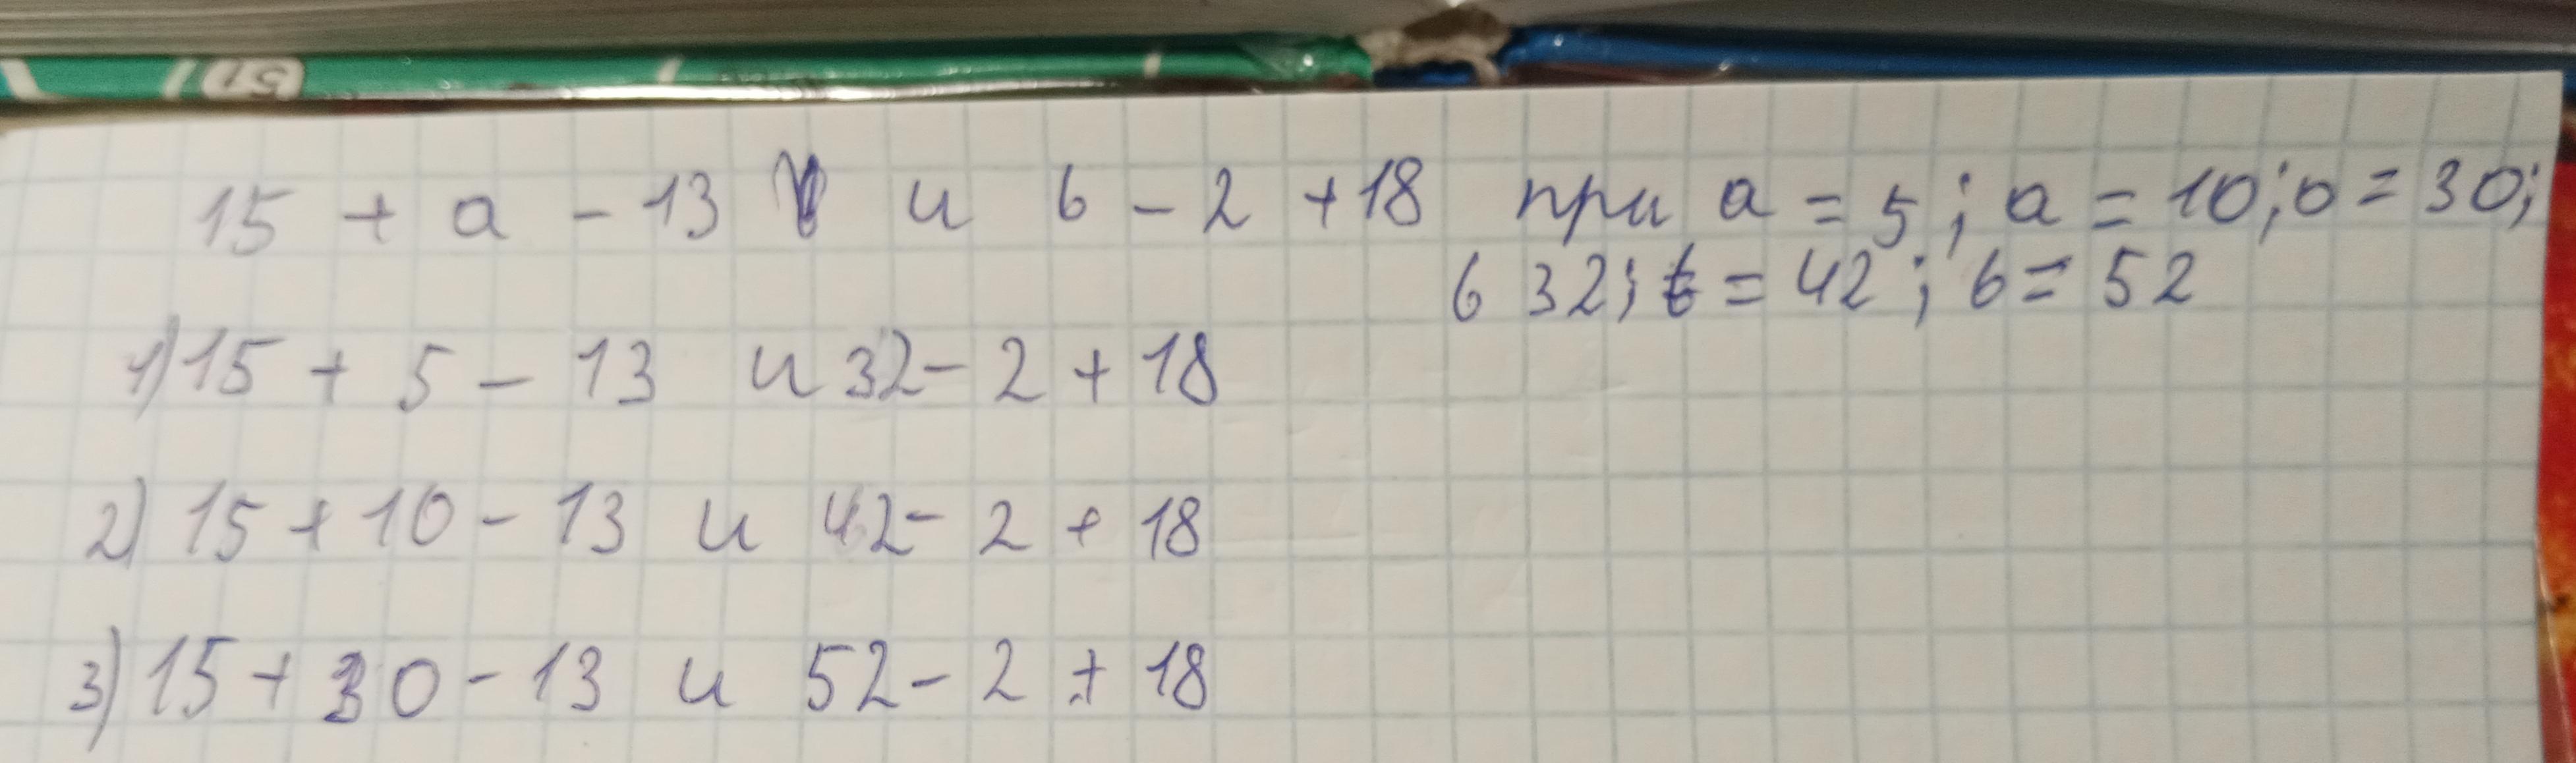 15 + а - 13 и в - 2 + 18 при а = 5; а = 10; а = 30;
в 32; в = 42; в = 52
1) 15 + 5 - 13 и 32 - 2 + 18
2) 15 + 10 - 13 и 42 - 2 + 18
3) 15 + 30 - 13 и 52 - 2 + 18